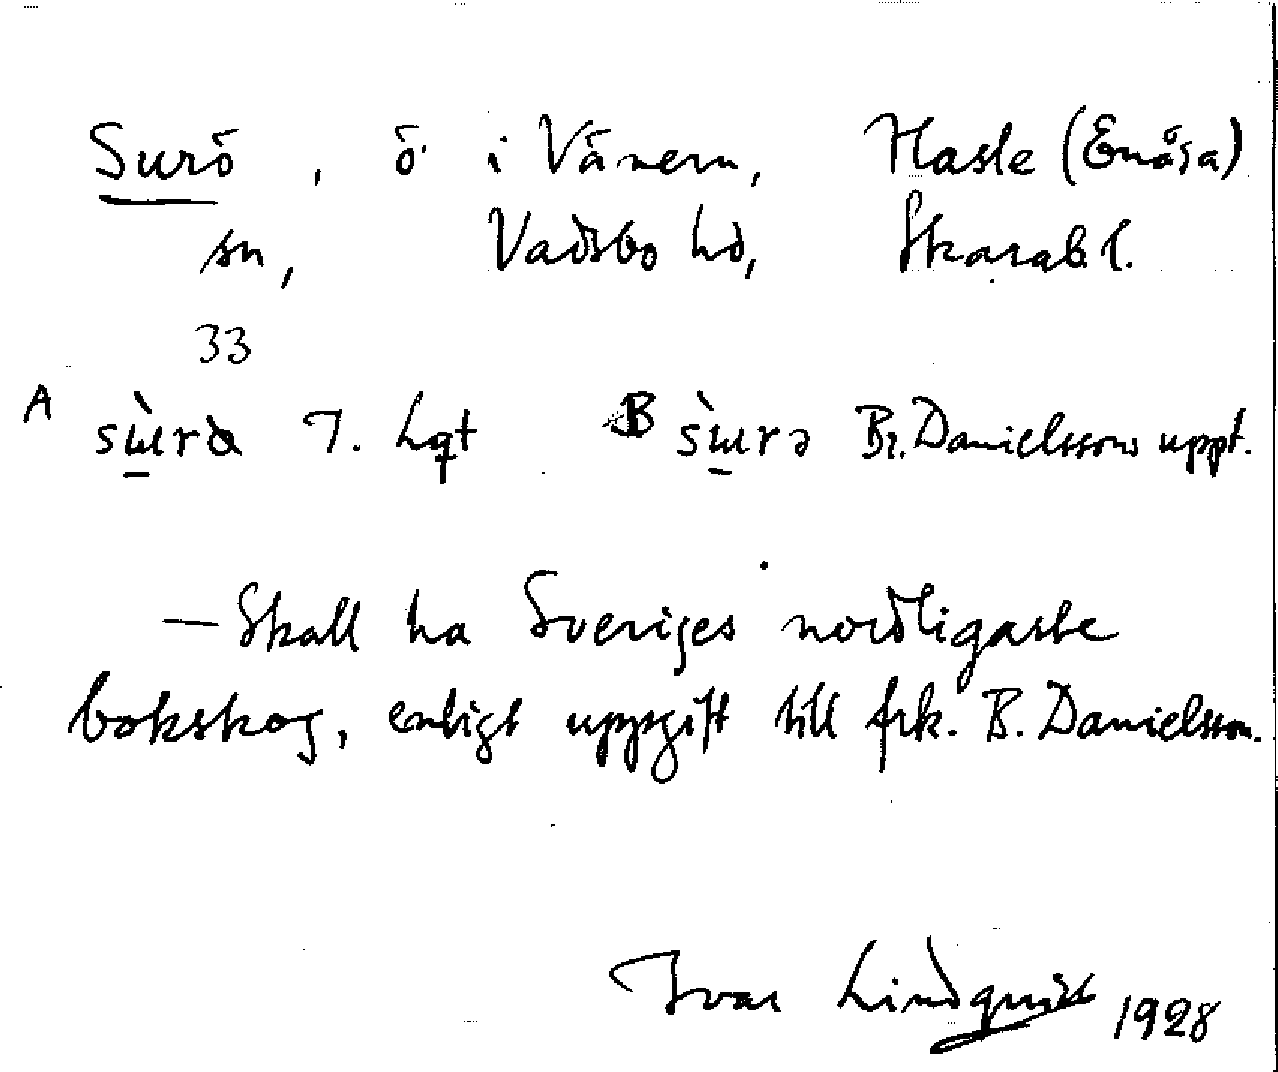 Surö, ö i Vänern, Hasle (Enåsa)
sn, Vadsbo hd, Skarab. l.
33
A sɯ̀rə I. Lqt B sɯ̀rə Br. Danielssons uppt.
— Skall ha Sveriges nordligaste
bokskog, enligt uppgift till frk. B. Danielsson.
Ivar Lindquist 1928